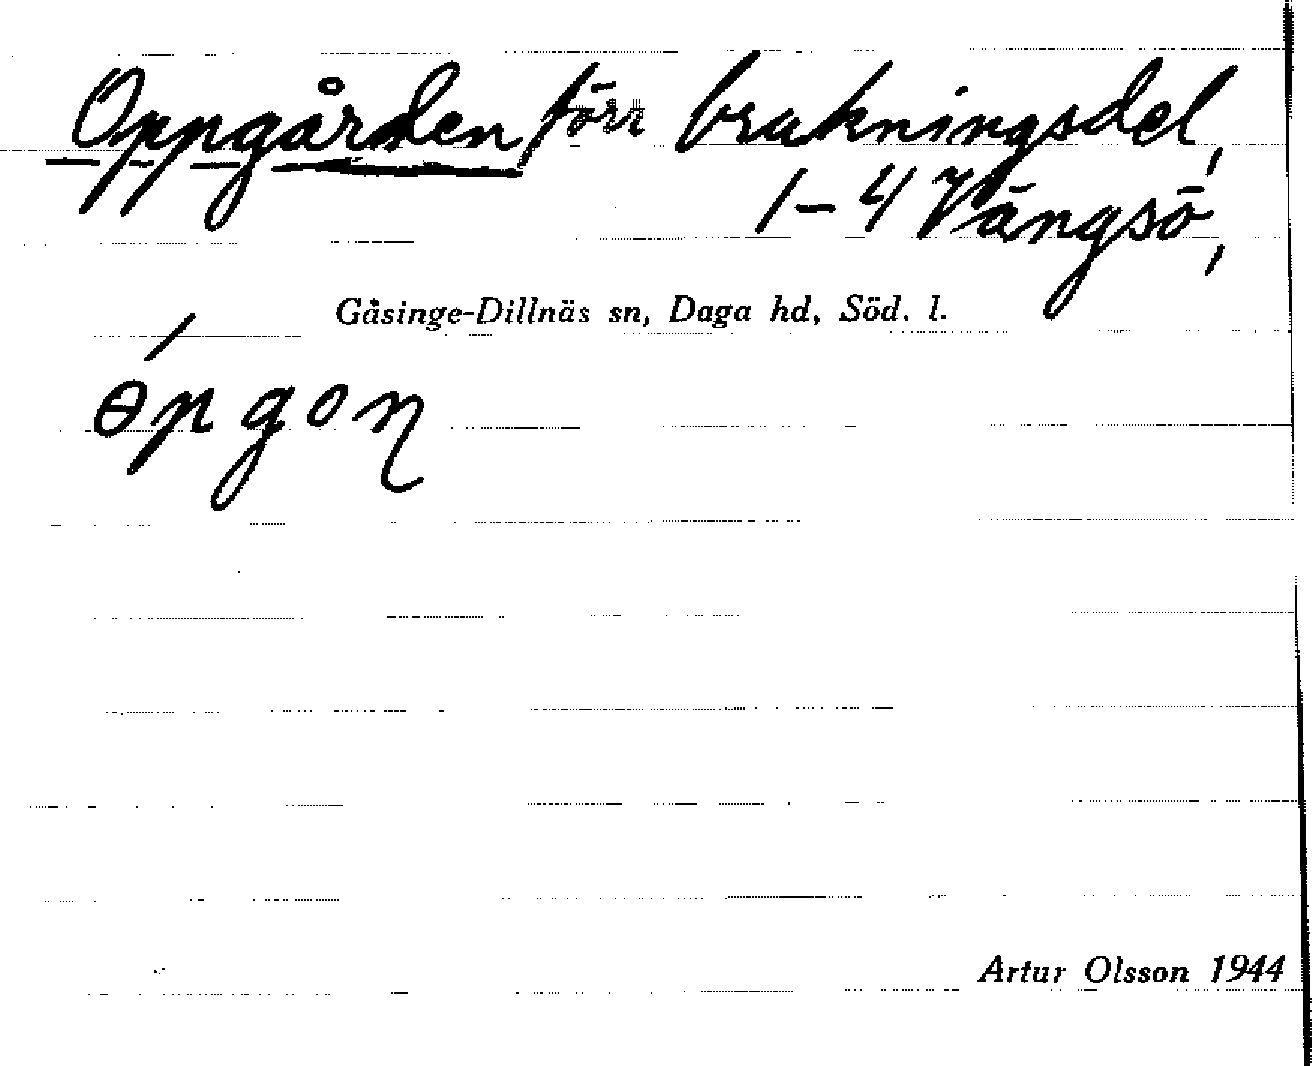 Oppgården förr brukningsdel,
1-4 Vängsö,
Gåsinge-Dillnäs sn, Daga hd, Söd. l.
ɵ́pgoɳ
Artur Olsson 1944